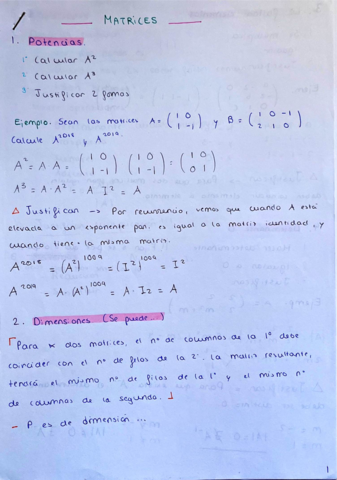 MATRICES
1. Potencias
1º Calcular A²
2 Calcular A³
3 Justificar 2 formas
Ejemplo. Sean las matrices A = (1 0 / 1 -1) y B = (1 0 -1 / 2 1 0)
Calcule A²⁰¹⁸ y A²⁰¹⁹
A² = A · A = (1 0 / 1 -1) (1 0 / 1 -1) = (1 0 / 0 1)
A³ = A · A² = A · I² = A
△ Justifican → Por recurrencia, vemos que cuando A está
elevada a un exponente par, es igual a la matriz identidad, y
cuando tiene la misma matriz.
A²⁰¹⁸ = (A²)¹⁰⁰⁹ = (I²)¹⁰⁰⁹ = I²
A²⁰¹⁹ = A · (A²)¹⁰⁰⁹ = A · I2 = A
2. Dimensiones (Se puede...)
「Para x dos matrices, el nº de columnas de la 1º debe
coincidir con el nº de filas de la 2º. La matriz resultante,
tendrá el mismo nº de filas de la 1º y el mismo nº
de columnas de la segunda.」
- P es de dimensión ...
1